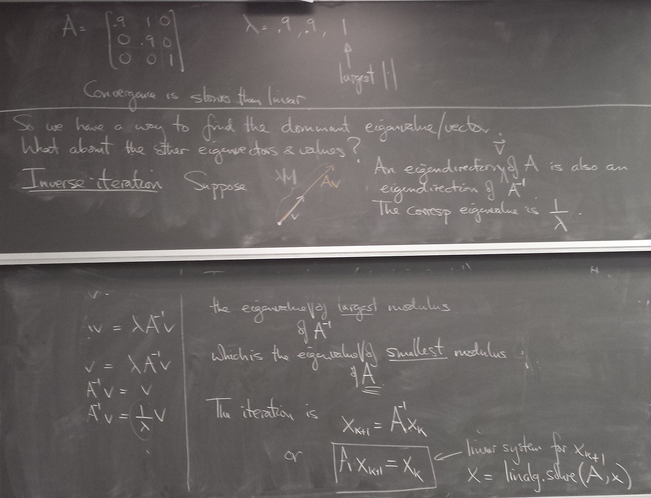 A = [ .9 1 0
0 .9 0
0 0 1 ]
λ = .9, .9, 1
largest | |
Convergence is slower than linear
So we have a way to find the dominant eigenvalue/vector.
What about the other eigenvectors & values?
Inverse iteration Suppose
λv
Av
v
An eigendirection v of A is also an
eigendirection of A⁻¹
The corresp eigenvalue is 1/λ.
v = λA⁻¹v
v = λA⁻¹v
A⁻¹v = v
A⁻¹v = 1/λ v
the eigenvalue/v of largest modulus
of A⁻¹
which is the eigenvalue/v of smallest modulus
of A
The iteration is x_{k+1} = A⁻¹x_k
or A x_{k+1} = x_k
linear system for x_{k+1}
x = linalg.solve(A,x)